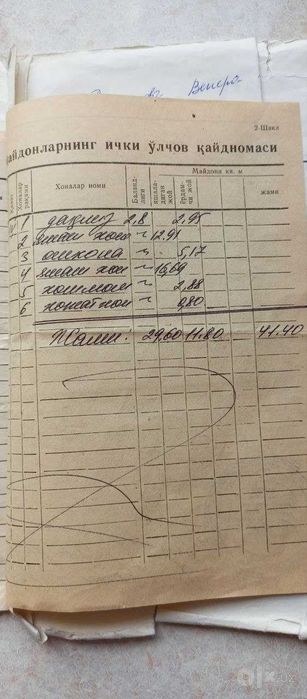 2-Шакл
айдонларнинг ички ўлчов қайдномаси
Хоналар рақами
Хоналар номи
Баландлиги
Майдони кв. м
яшаладиган жой
ёрдамчи жой
жами
1 даҳлез 2.8 2,95
2 яшаш хона ~ 12.91
3 ошхона ~ 5,17
4 яшаш хон ~ 16,69
5 ~ 2,88
6 ~ 0,80
Жами: 29,60 11.80 41.40
OLX.uz